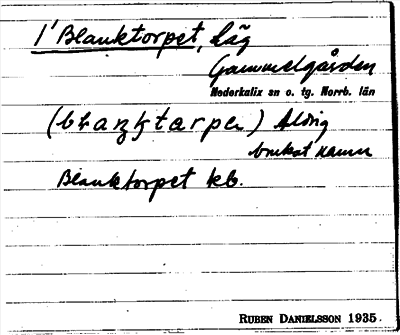 1' Blanktorpet, låg
Gammelgården
Nederkalix sn o. tg. Norrb. län
Aldrig
brukat namn
Blanktorpet kb.
RUBEN DANIELSSON 1935.